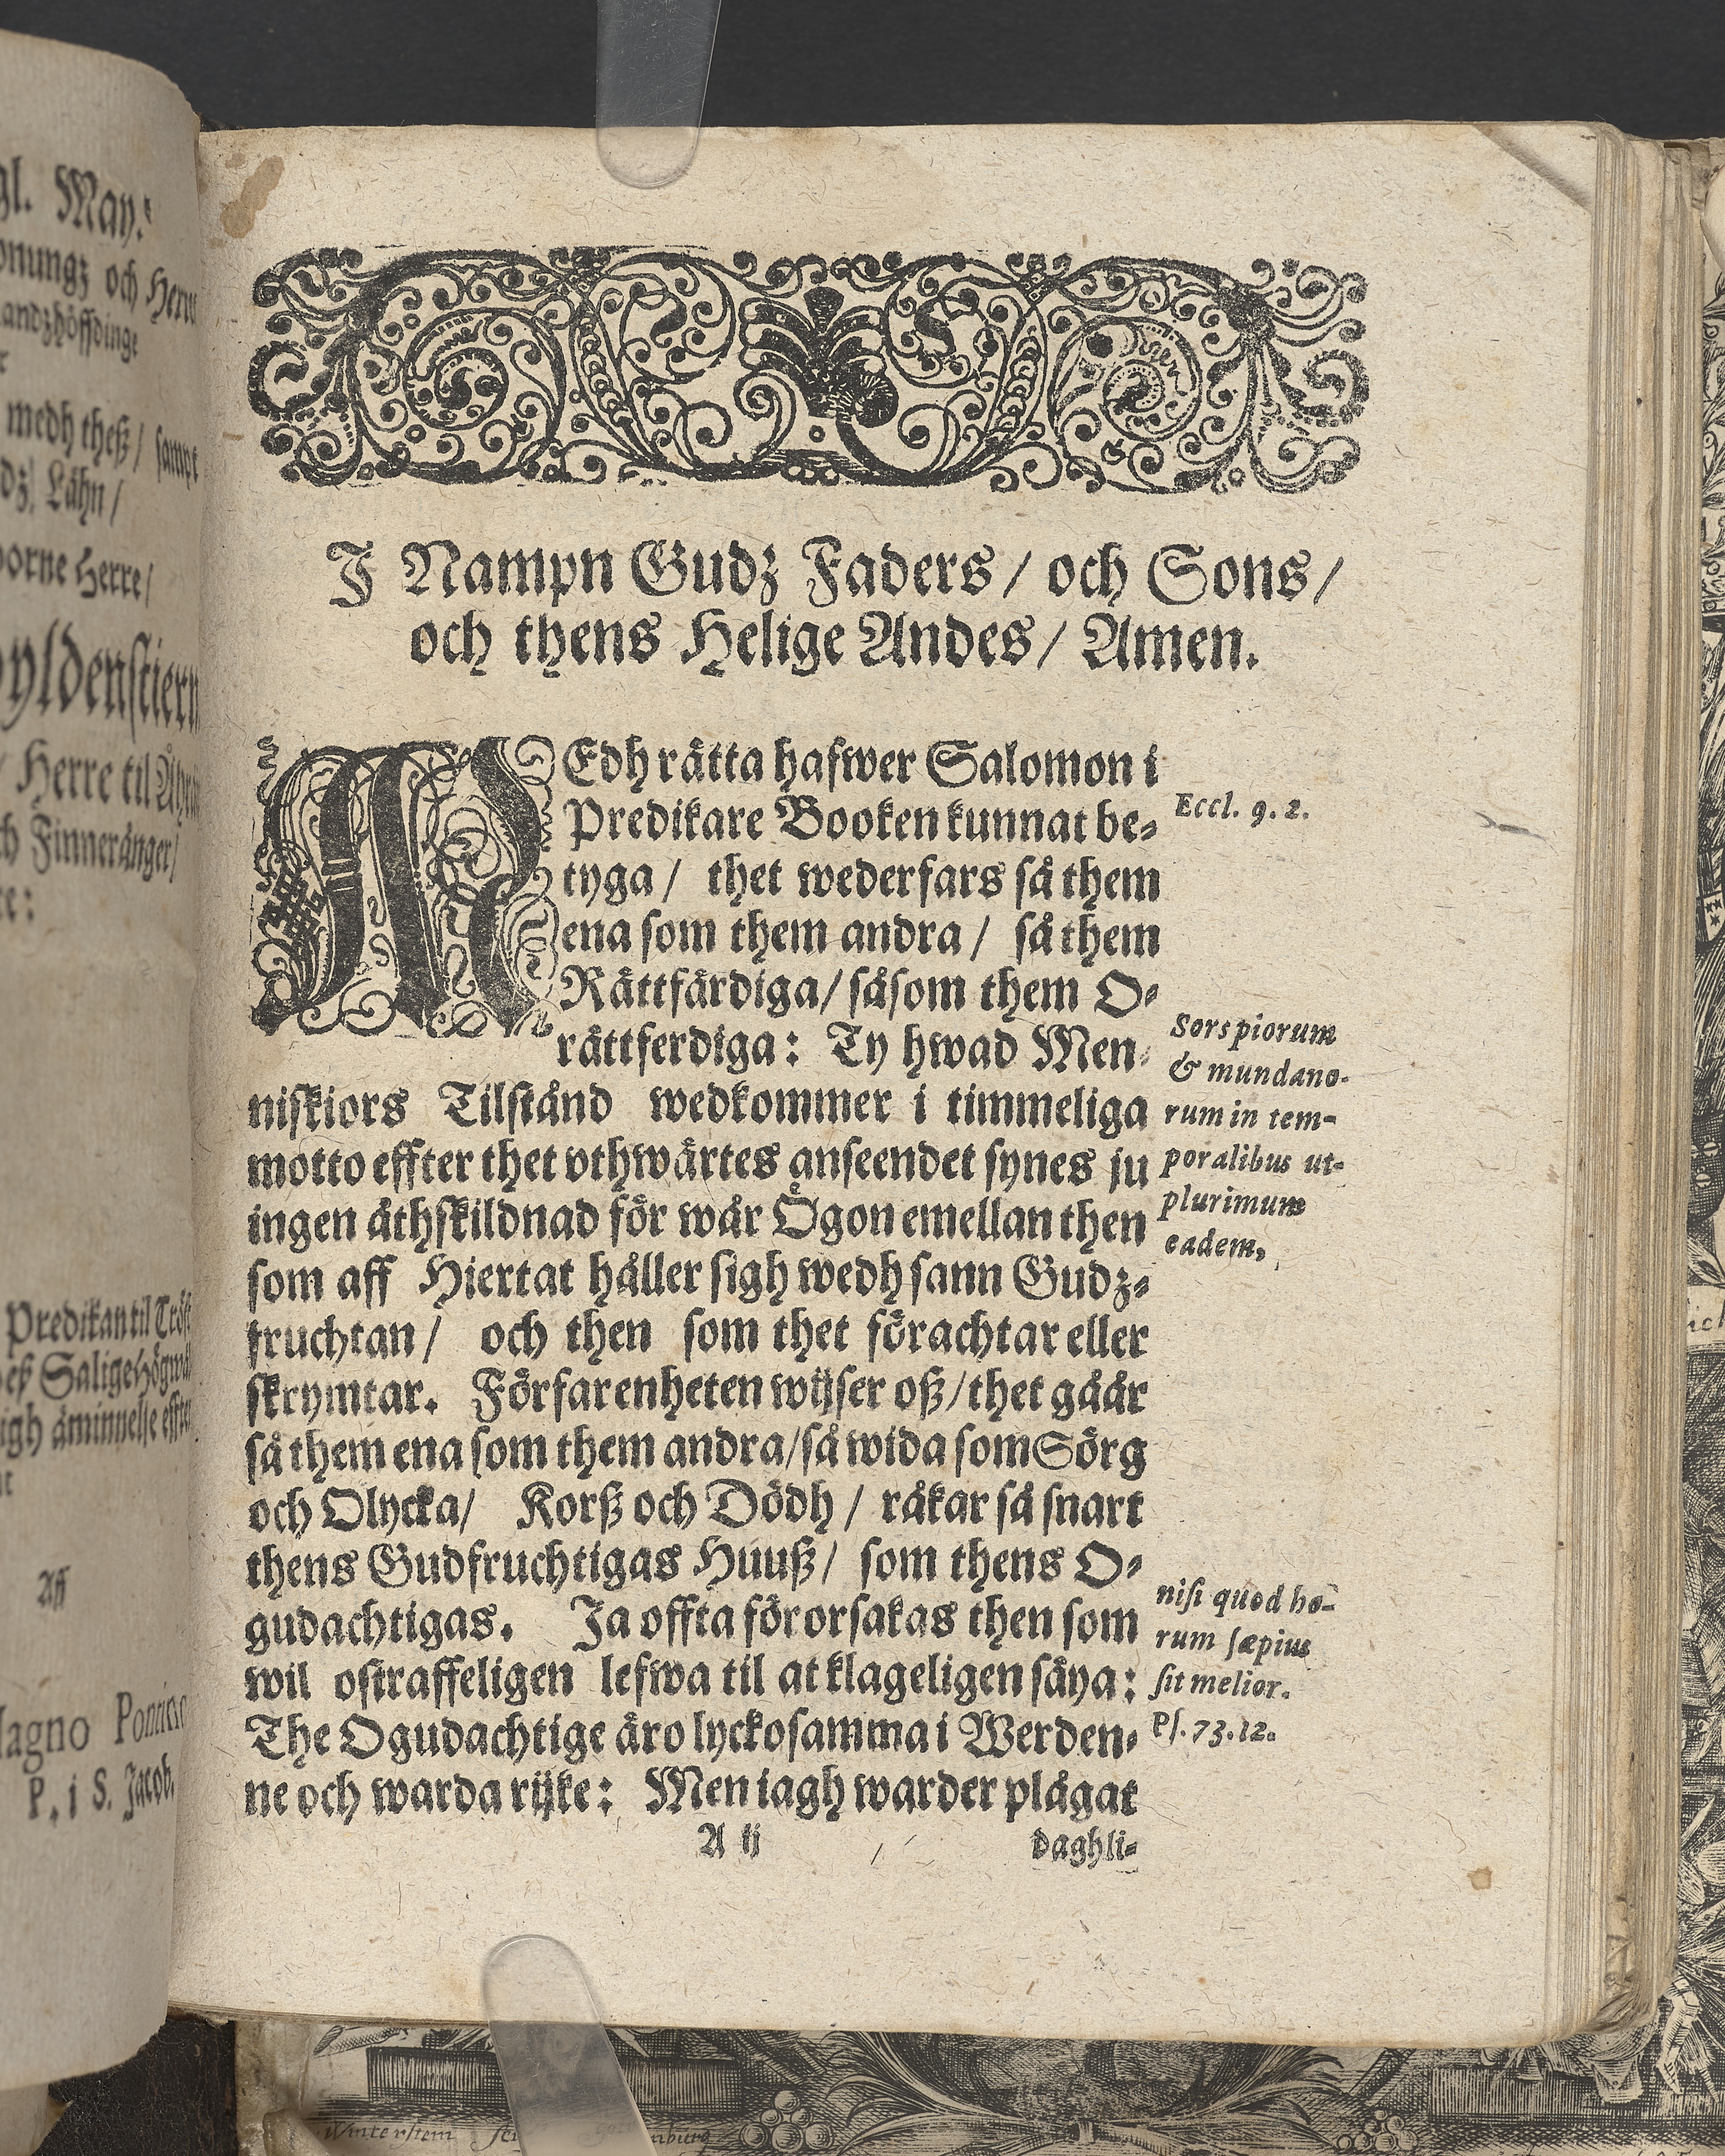 gl. May:
onungz och Herr
andzhöffdinge
medh theß / sampt
dz. Lähn /
borne Herre /
yldenstiern
/ Herre til
ch Finneränger /
re:
Predikan til Tröst
eß Salige Högwäl
igh åminnelse effter
Aff
Magno Pontino
P. i S. Jacob.
I Nampn Gudz Faders / och Sons /
och thens Helige Andes / Amen.
MEdh rätta hafwer Salomon i
Predikare Booken kunnat be-
Eccl. 9. 2.
tyga / thet wederfars så them
ena som them andra / så them
Rättfärdiga / såsom them O-
rättferdiga: Ty hwad Men-
niskiors Tilstånd wedkommer i timmeliga
motto effter thet vthwärtes anseendet synes ju
ingen åthskildnad för wår Ögon emellan then
Sors piorum
& mundano-
rum in tem-
poralibus ut-
plurimum
eadem,
som aff Hiertat håller sigh wedh sann Gudz-
fruchtan / och then som thet förachtar eller
skrymtar. Förfarenheten wijser oß / thet gåår
så them ena som them andra / så wida som Sörg
och Olycka / Korß och Dödh / råkar så snart
thens Gudfruchtigas Huuß / som thens O-
gudachtigas. Ja offta förorsakas then som
wil ostraffeligen lefwa til at klageligen säya:
The Ogudachtige äro lyckosamma i Werden-
nisi quod ho-
rum sæpius
sit melior.
Ps. 73. 12.
ne och warda rijke: Men iagh warder plågat
A ij
daghli-